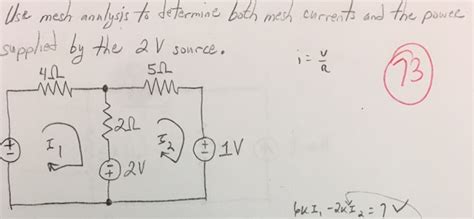 Use mesh analysis to determine both mesh currents and the power
supplied by the 2V source.
i = V/R
73
4Ω
5Ω
2Ω
I₁
I₂
2V
1V
6kI₁ - 2kI₂ = 7 ✓